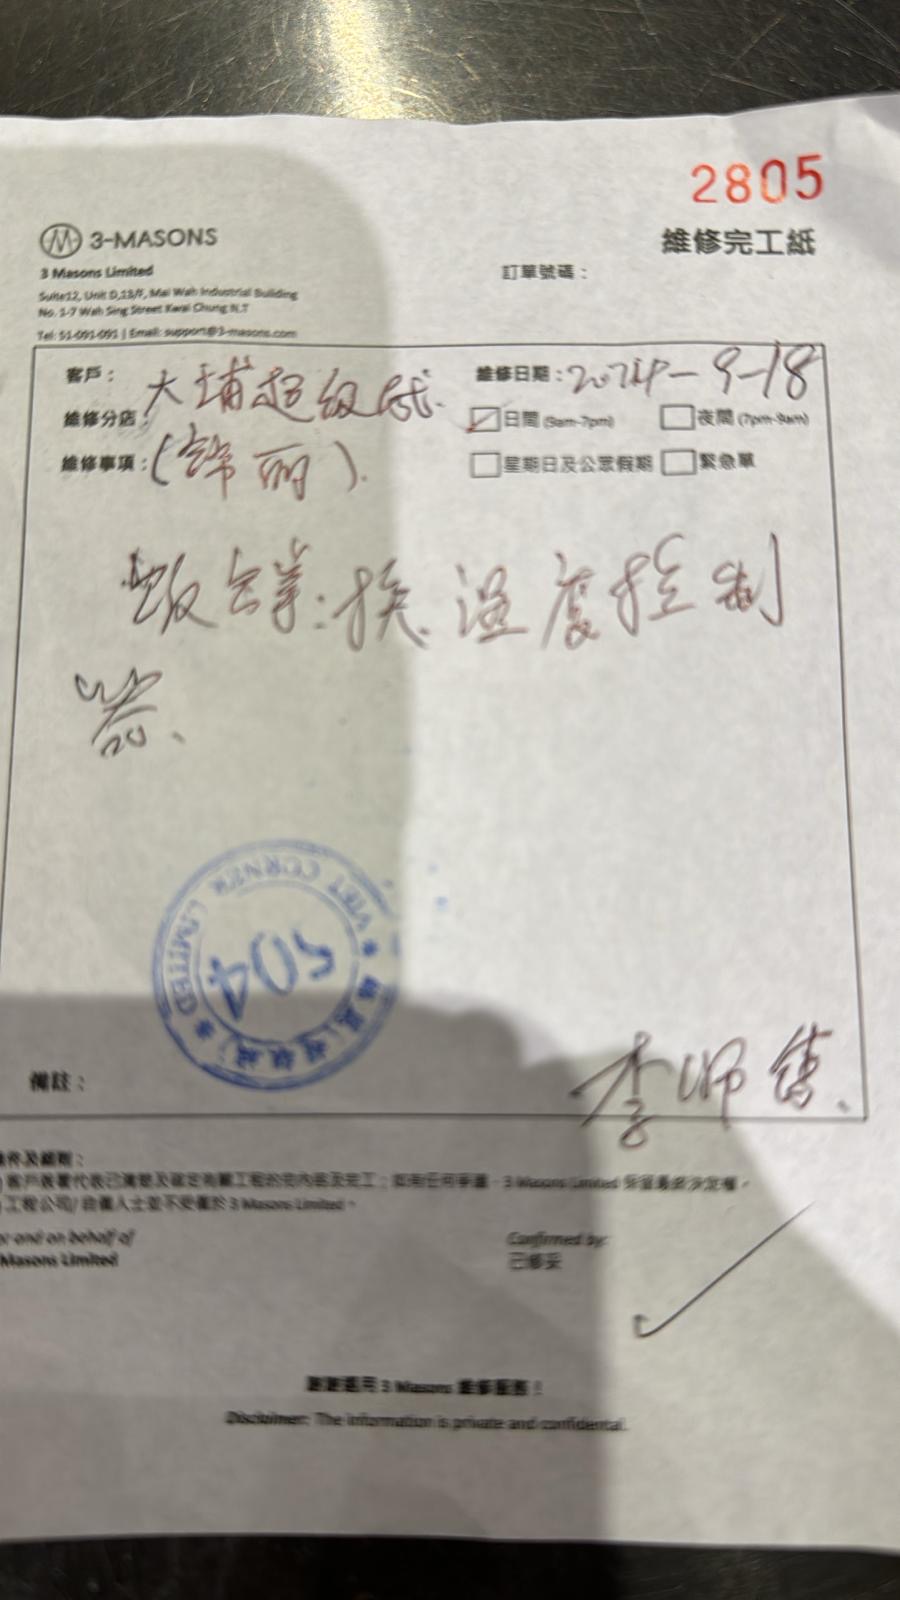 2805
3-MASONS
維修完工紙
3 Masons Limited
訂單號碼：
Suite12, Unit D,13/F, Mai Wah Industrial Building
No. 1-7 Wah Sing Street Kwai Chung N.T
Tel: 51-091-091 | Email: support@3-masons.com
客戶：
大埔超级城.
維修日期：2024-9-18
維修分店：
日間 (9am-7pm)
夜間 (7pm-9am)
維修事項：(錦丽).
星期日及公眾假期
緊急單
换温度控制
器.
VIET CORNER LIMITED
504
備註：
李师傅.
條件及細則：
客戶表署代表已清楚及確定有關工程的完內容及完工；如有任何爭議，3 Masons Limited 保留最終決定權。
3 Masons Limited。
or and on behalf of
Masons Limited
Confirmed by:
已修妥
謝謝選用 3 Masons 維修服務！
Disclaimer: The information is private and confidential.